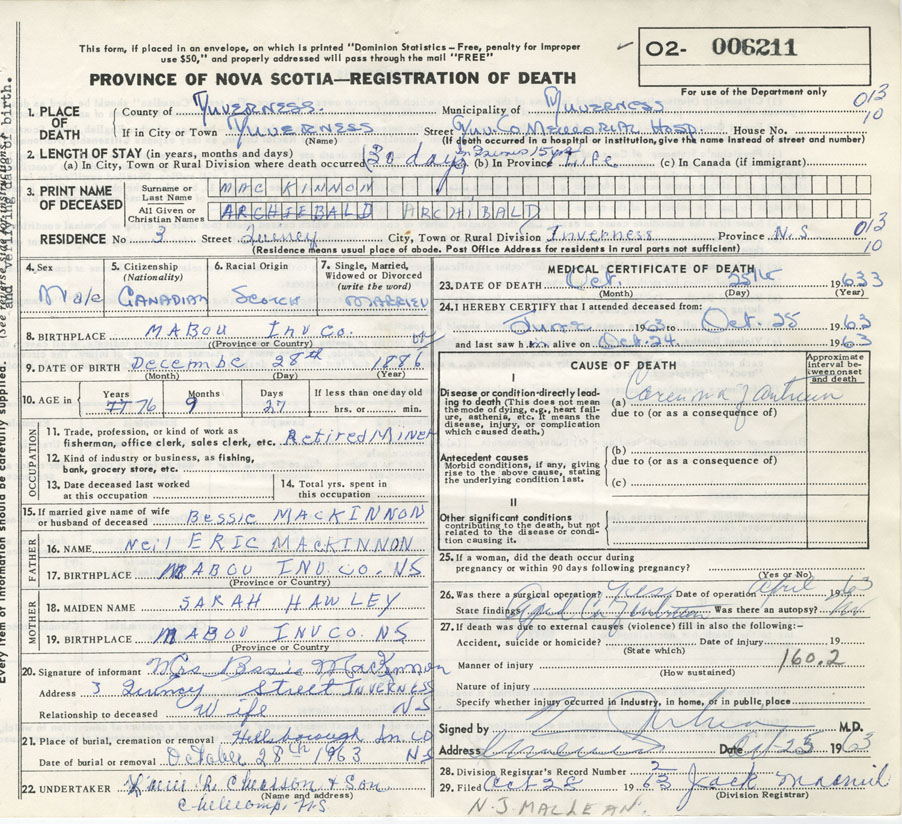 This form, if placed in an envelope, on which is printed "Dominion Statistics – Free, penalty for improper
use $50," and properly addressed will pass through the mail "FREE"
O2- 006211
For use of the Department only
PROVINCE OF NOVA SCOTIA—REGISTRATION OF DEATH
013
10
1. PLACE OF DEATH
County of INVERNESS Municipality of INVERNESS
If in City or Town INVERNESS Street Inv. Co Memorial Hosp. House No.
(Name) (If death occurred in a hospital or institution, give the name instead of street and number)
2. LENGTH OF STAY (in years, months and days)
(a) In City, Town or Rural Division where death occurred 30 days (b) In Province Life (c) In Canada (if immigrant)
3. PRINT NAME OF DECEASED
Surname or Last Name MAC KINNON
All Given or Christian Names ARCHIEBALD ARCHIBALD
RESIDENCE No 3 Street Quincy City, Town or Rural Division Inverness Province N.S
013
10
(Residence means usual place of abode. Post Office Address for residents in rural parts not sufficient)
4. Sex Male
5. Citizenship (Nationality) CANADIAN
6. Racial Origin SCOTCH
7. Single, Married, Widowed or Divorced (write the word) MARRIED
8. BIRTHPLACE MABOU INV. CO.
(Province or Country)
9. DATE OF BIRTH December 28th 1886
(Month) (Day) (Year)
10. AGE in Years 77 76 Months 9 Days 27 If less than one day old hrs. or min.
OCCUPATION
11. Trade, profession, or kind of work as fisherman, office clerk, sales clerk, etc. Retired Miner
12. Kind of industry or business, as fishing, bank, grocery store, etc.
13. Date deceased last worked at this occupation
14. Total yrs. spent in this occupation
15. If married give name of wife or husband of deceased Bessie MACKINNON
FATHER
16. NAME Neil ERIC MACKINNON
17. BIRTHPLACE MABOU INV CO. NS
(Province or Country)
MOTHER
18. MAIDEN NAME SARAH HAWLEY
19. BIRTHPLACE MABOU INV CO. NS
(Province or Country
20. Signature of informant Mrs MacKinnon
Address 3 Quincy Street INVERNESS
Relationship to deceased Wife NS
21. Place of burial, cremation or removal Hillsborough Inv. CO
Date of burial or removal October 28th 1963 NS
22. UNDERTAKER R. Chiasson & Son
(Name and address)
N.S
MEDICAL CERTIFICATE OF DEATH
23. DATE OF DEATH Oct. 25th 1963
(Month) (Day) (Year)
24. I HEREBY CERTIFY that I attended deceased from:
June 1963 to Oct. 25 1963
and last saw him alive on Oct. 24. 1963
CAUSE OF DEATH
Approximate interval between onset and death
I
Disease or condition directly leading to death (This does not mean the mode of dying, e.g., heart failure, asthenia, etc. It means the disease, injury, or complication which caused death.)
(a) Carcinoma of antrum
due to (or as a consequence of)
Antecedent causes
Morbid conditions, if any, giving rise to the above cause, stating the underlying condition last.
(b)
due to (or as a consequence of)
(c)
II
Other significant conditions
contributing to the death, but not related to the disease or condition causing it.
25. If a woman, did the death occur during pregnancy or within 90 days following pregnancy?
(Yes or No)
26. Was there a surgical operation? Yes Date of operation April 1963
State findings Was there an autopsy?
27. If death was due to external causes (violence) fill in also the following:-
Accident, suicide or homicide? Date of injury 19
(State which)
Manner of injury 160.2
(How sustained)
Nature of injury
Specify whether injury occurred in industry, in home, or in public place
Signed by M.D.
Address Date Oct 25 1963
28. Division Registrar's Record Number 2
29. Filed Oct 28 1963 Jack
(Division Registrar)
N.J. MACLEAN.
Every item of information should be carefully supplied.
and verifying date of birth.